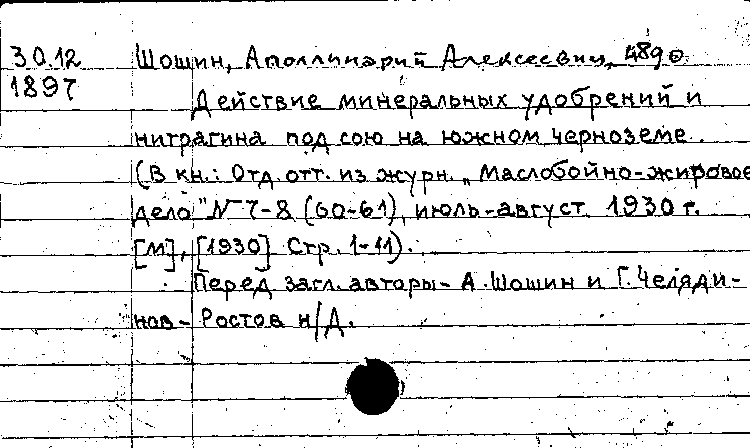 30.12 Шошин, Аполлинарий Алексеевич, 1890
1897
Действие минеральных удобрений и
нитрагина под сою на южном черноземе.
(В кн.: Отд. отт. из журн. „Маслобойно-жировое
дело" № 7-8 (60-61), июль-август 1930 г.
[М], [1930] Стр. 1-11).
Перед загл. авторы - А. Шошин и Г. Челяди-
нов - Ростов н/Д.